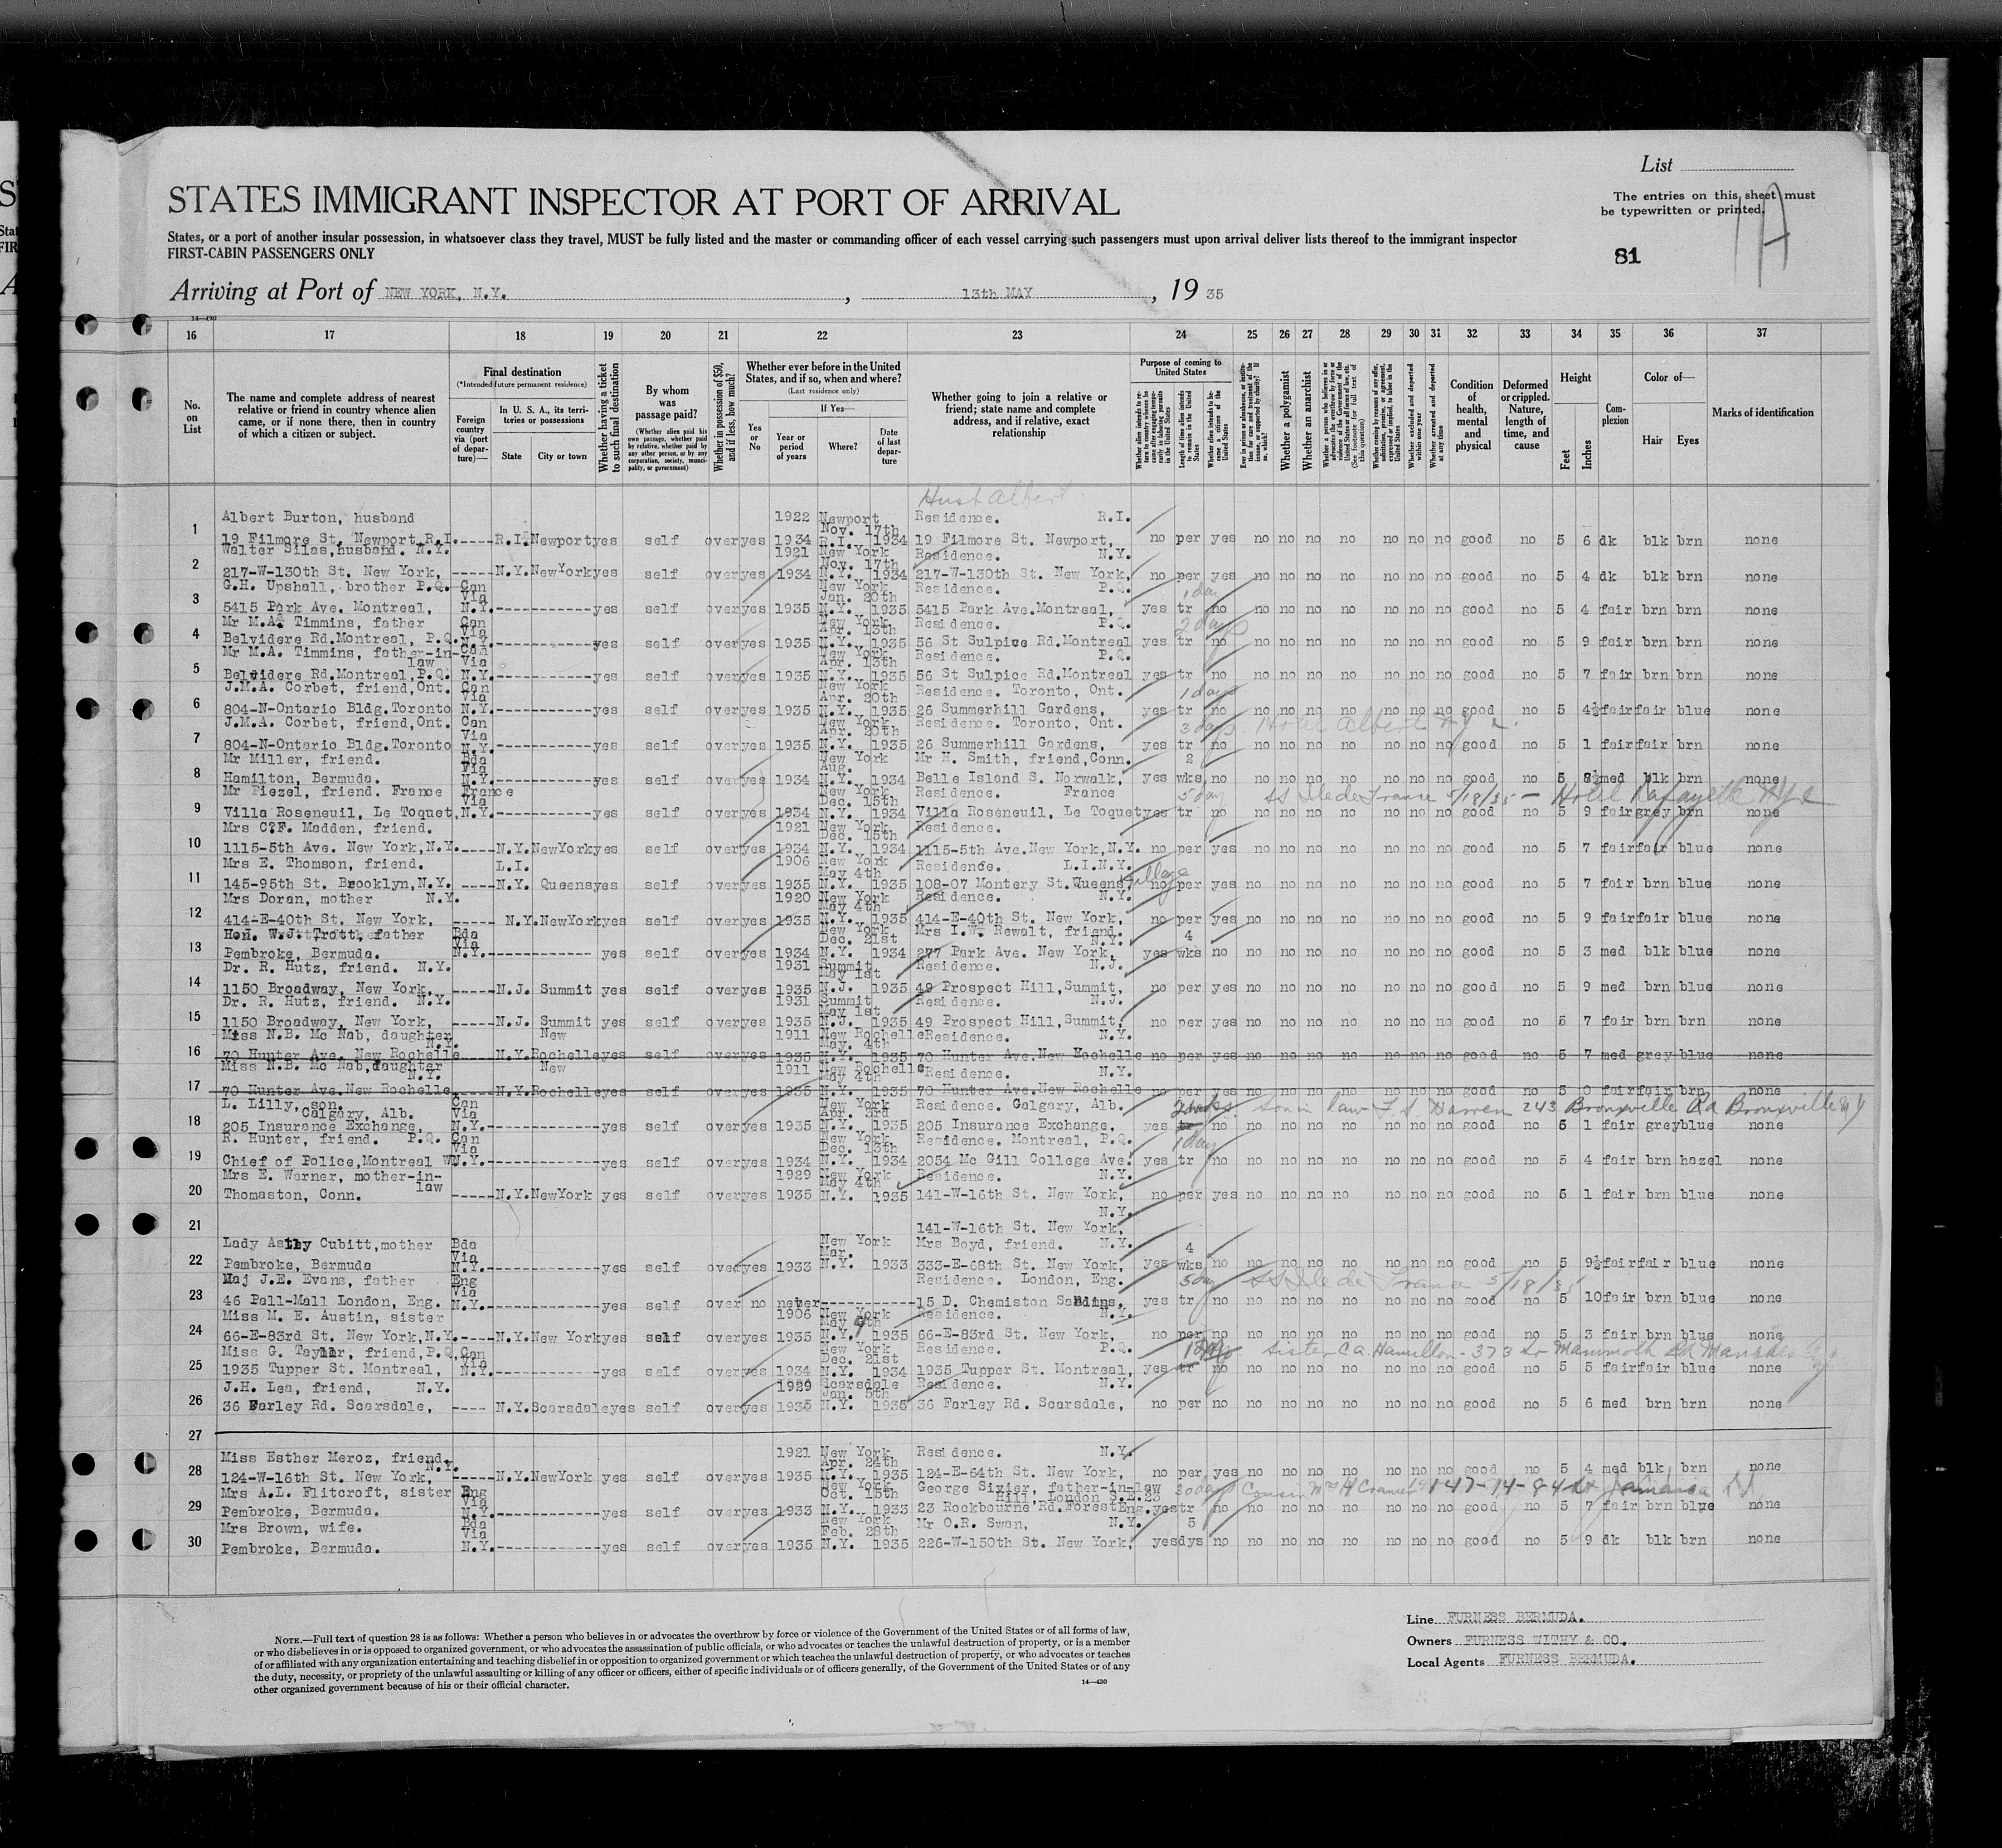 List
STATES IMMIGRANT INSPECTOR AT PORT OF ARRIVAL
The entries on this sheet must
be typewritten or printed.
States, or a port of another insular possession, in whatsoever class they travel, MUST be fully listed and the master or commanding officer of each vessel carrying such passengers must upon arrival deliver lists thereof to the immigrant inspector
FIRST-CABIN PASSENGERS ONLY
81
Arriving at Port of NEW YORK, N.Y. , 13th MAY , 19 35
14-430
16 17 18 19 20 21 22 23 24 25 26 27 28 29 30 31 32 33 34 35 36 37
No. on List
The name and complete address of nearest relative or friend in country whence alien came, or if none there, then in country of which a citizen or subject.
Final destination
(*Intended future permanent residence)
Foreign country via (port of departure)—
In U. S. A., its territories or possessions
State
City or town
Whether having a ticket to such final destination
By whom was passage paid?
(Whether alien paid his own passage, whether paid by relative, whether paid by any other person, or by any corporation, society, municipality, or government)
Whether in possession of $50, and if less, how much?
Whether ever before in the United States, and if so, when and where?
(Last residence only)
Yes or No
If Yes—
Year or period of years
Where?
Date of last departure
Whether going to join a relative or friend; state name and complete address, and if relative, exact relationship
Purpose of coming to United States
Length of time alien intends to remain in the United States
Whether alien intends to become a citizen of the United States
Whether a polygamist
Whether an anarchist
Condition of health, mental and physical
Deformed or crippled. Nature, length of time, and cause
Height
Feet
Inches
Complexion
Color of—
Hair
Eyes
Marks of identification
Albert Burton, husband 1922 Newport Residence. R.I.
Nov. 17th
1 19 Filmore St. Newport R.I.-----R.I. Newport yes self over yes 1934 R.I. 1934 19 Filmore St. Newport, no per yes no no no no no no no good no 5 6 dk blk brn none
Walter Silas, husband. N.Y. 1921 New York Residence. N.Y.
Nov. 17th
2 217-W-130th St. New York, -----N.Y. New York yes self over yes 1934 N.Y. 1934 217-W-130th St. New York, no per yes no no no no no no no good no 5 4 dk blk brn none
G.H. Upshall, brother P.Q. Can Via New York Residence. P.Q. 1 day
Jan. 20th
3 5415 Park Ave. Montreal, N.Y.------------yes self over yes 1935 N.Y. 1935 5415 Park Ave.Montreal, yes tr no no no no no no no no good no 5 4 fair brn brn none
Mr M.A. Timmins, father Can Via New York Residence. P.Q. 2 days
Apr. 13th
4 Belvidere Rd.Montreal, P.Q. N.Y.------------yes self over yes 1935 N.Y. 1935 56 St Sulpice Rd.Montreal yes tr no no no no no no no no good no 5 9 fair brn brn none
Mr M.A. Timmins, father-in-law Can Via New York Residence. P.Q.
Apr. 13th
5 Belvidere Rd.Montreal,P.Q. N.Y.------------yes self over yes 1935 N.Y. 1935 56 St Sulpice Rd.Montreal yes tr no no no no no no no no good no 5 7 fair brn brn none
J.M.A. Corbet, friend,Ont. Can Via New York Residence. Toronto, Ont. 1 days
Apr. 20th
6 804-N-Ontario Bldg.Toronto N.Y.------------yes self over yes 1935 N.Y. 1935 26 Summerhill Gardens, yes tr no no no no no no no no good no 5 4½ fair fair blue none
J.M.A. Corbet, friend,Ont. Can Via New York Residence. Toronto, Ont. 3 days. Hotel Albert N Y
Apr. 20th
7 804-N-Ontario Bldg.Toronto N.Y.------------yes self over yes 1935 N.Y. 1935 26 Summerhill Gardens, yes tr no no no no no no no no good no 5 1 fair fair brn none
Mr Miller, friend. Bda Via New York Mr H. Smith, friend,Conn. 2
Aug.
8 Hamilton, Bermuda. N.Y.------------yes self over yes 1934 N.Y. 1934 Belle Island S. Norwalk, yes wks no no no no no no no no good no 5 8½ med blk brn none
Mr Piezel, friend. France France Via New York Residence. France 5 day SS Ile de France 5/18/35 — Hotel Lafayette NYC
Dec. 15th
9 Villa Roseneuil, Le Toquet, N.Y.------------yes self over yes 1934 N.Y. 1934 Villa Roseneuil, Le Toquet yes tr no no no no no no no no good no 5 9 fair grey brn none
Mrs C.F. Madden, friend. 1921 New York Residence.
Dec. 15th
10 1115-5th Ave. New York,N.Y.-----N.Y. New York yes self over yes 1934 N.Y. 1934 1115-5th Ave.New York,N.Y. no per yes no no no no no no no good no 5 7 fair fair blue none
Mrs E. Thomson, friend. L.I. 1906 New York Residence. L.I.N.Y.
May 4th village
11 145-95th St. Brooklyn,N.Y. ----N.Y. Queens yes self over yes 1935 N.Y. 1935 108-07 Montery St.Queens, no per yes no no no no no no no good no 5 7 fair brn blue none
Mrs Doran, mother N.Y. 1920 New York Residence. N.Y.
May 4th
12 414-E-40th St. New York, ----- N.Y. New York yes self over yes 1935 N.Y. 1935 414-E-40th St. New York, no per yes no no no no no no no good no 5 9 fair fair blue none
Hon. W.J. Trott, father Bda Via New York Mrs I.W. Rewalt, friend. N.Y. 4
Dec. 21st
13 Pembroke, Bermuda. N.Y.------------ yes self over yes 1934 N.Y. 1934 277 Park Ave. New York, yes wks no no no no no no no no good no 5 3 med blk blue none
Dr. R. Hutz, friend. N.Y. 1931 Summit Residence. N.J.
May 1st
14 1150 Broadway, New York, -----N.J. Summit yes self over yes 1935 N.J. 1935 49 Prospect Hill,Summit, no per yes no no no no no no no good no 5 9 med brn blue none
Dr. R. Hutz, friend. N.Y. 1931 Summit Residence. N.J.
May 1st
15 1150 Broadway, New York, -----N.J. Summit yes self over yes 1935 N.J. 1935 49 Prospect Hill,Summit, no per yes no no no no no no no good no 5 7 fair brn brn none
Miss N.B. Mc Nab, daughter N.Y. New 1911 New Rochelle Residence. N.Y.
May. 4th
16 70 Hunter Ave. New Rochelle N.Y. Rochelle yes self over yes 1935 N.Y. 1935 70 Hunter Ave.New Rochelle no per yes no no no no no no no good no 5 7 med grey blue none
Miss N.B. Mc Nab,daughter N.Y. New 1911 New Rochelle Residence. N.Y.
May 4th
17 70 Hunter Ave.New Rochelle,----N.Y. Rochelle yes self over yes 1935 N.Y. 1935 70 Hunter Ave.New Rochelle no per yes no no no no no no no good no 5 0 fair fair brn none
L. Lilly, son. Calgary, Alb. Can Via New York Residence. Calgary, Alb. son in law F. S. Warren 243 Bronxville Rd Bronxville N Y
Apr. 3rd
18 205 Insurance Exchange, N.Y.------------yes self over yes 1935 N.Y. 1935 205 Insurance Exchange, yes tr no no no no no no no no good no 5 1 fair grey blue none
R. Hunter, friend. P.Q. Can Via New York Residence. Montreal, P.Q. 1 day
Dec. 13th
19 Chief of Police,Montreal W. N.Y.------------yes self over yes 1934 N.Y. 1934 2054 Mc Gill College Ave. yes tr no no no no no no no no good no 5 4 fair brn hazel none
Mrs E. Warner, mother-in-law 1929 New York Residence. N.Y.
May 4th
20 Thomaston, Conn. -----N.Y. New York yes self over yes 1935 N.Y. 1935 141-W-16th St. New York, no per yes no no no no no no no good no 5 1 fair brn blue none
N.Y.
21 141-W-16th St. New York,
Lady Astly Cubitt,mother Bda Via New York Mrs Boyd, friend. N.Y. 4
Mar.
22 Pembroke, Bermuda N.Y.------------yes self over yes 1933 N.Y. 1933 333-E-68th St. New York, yes wks no no no no no no no no good no 5 9½ fair fair blue none
Maj J.E. Evans, father Eng Via Residence. London, Eng. 5 day SS Ile de France 5/18/35
23 46 Pall-Mall London, Eng. N.Y.------------yes self over no never------------15 D. Chemiston yes tr no no no no no no no no good no 5 10 fair brn blue none
Miss M. E. Austin, sister 1906 New York Residence. N.Y.
May 4th
24 66-E-83rd St. New York,N.Y.----N.Y. New York yes self over yes 1935 N.Y. 1935 66-E-83rd St. New York, no per no no no no no no no no good no 5 3 fair brn blue none
Miss G. Tayler, friend,P.Q. Can Via New York Residence. P.Q. Sister C A. Hamilton - 373 So Mammoth Rd
Dec. 21st
25 1935 Tupper St. Montreal, N.Y.------------yes self over yes 1934 N.Y. 1934 1935 Tupper St. Montreal, yes tr no no no no no no no no good no 5 5 fair fair blue none
J.H. Lea, friend, N.Y. 1929 Scarsdale Residence. N.Y.
Jan. 5th
26 36 Farley Rd. Scarsdale, ---- N.Y. Scarsdale yes self over yes 1935 N.Y. 1935 36 Farley Rd. Scarsdale, no per no no no no no no no no good no 5 6 med brn brn none
27
Miss Esther Meroz, friend. N.Y. 1921 New York Residence. N.Y.
Apr. 24th
28 124-W-16th St. New York, -----N.Y. New York yes self over yes 1935 N.Y. 1935 124-E-64th St. New York, no per yes no no no no no no no good no 5 4 med blk brn none
Mrs A.L. Flitcroft, sister Eng Via New York George Sixier, father-in-law 30 days Cousin Mrs H Cramer 147-14-84 Jamaica L I
Oct. 15th Hill, London S.E.23
29 Pembroke, Bermuda. N.Y.------------yes self over yes 1933 N.Y. 1933 23 Rockbourne Rd.Forest Eng. yes tr no no no no no no no no good no 5 7 fair brn blue none
Mrs Brown, wife. Bda Via New York Mr O.R. Swan, N.Y. 5
Feb. 28th
30 Pembroke, Bermuda. N.Y.------------yes self over yes 1935 N.Y. 1935 226-W-150th St. New York, yes dys no no no no no no no no good no 5 9 dk blk brn none
NOTE.—Full text of question 28 is as follows: Whether a person who believes in or advocates the overthrow by force or violence of the Government of the United States or of all forms of law,
or who disbelieves in or is opposed to organized government, or who advocates the assassination of public officials, or who advocates or teaches the unlawful destruction of property, or is a member
of or affiliated with any organization entertaining and teaching disbelief in or opposition to organized government or which teaches the unlawful destruction of property, or who advocates or teaches
the duty, necessity, or propriety of the unlawful assaulting or killing of any officer or officers, either of specific individuals or of officers generally, of the Government of the United States or of any
other organized government because of his or their official character.
14—430
Line FURNESS BERMUDA.
Owners FURNESS WITHY & CO.
Local Agents FURNESS BERMUDA.